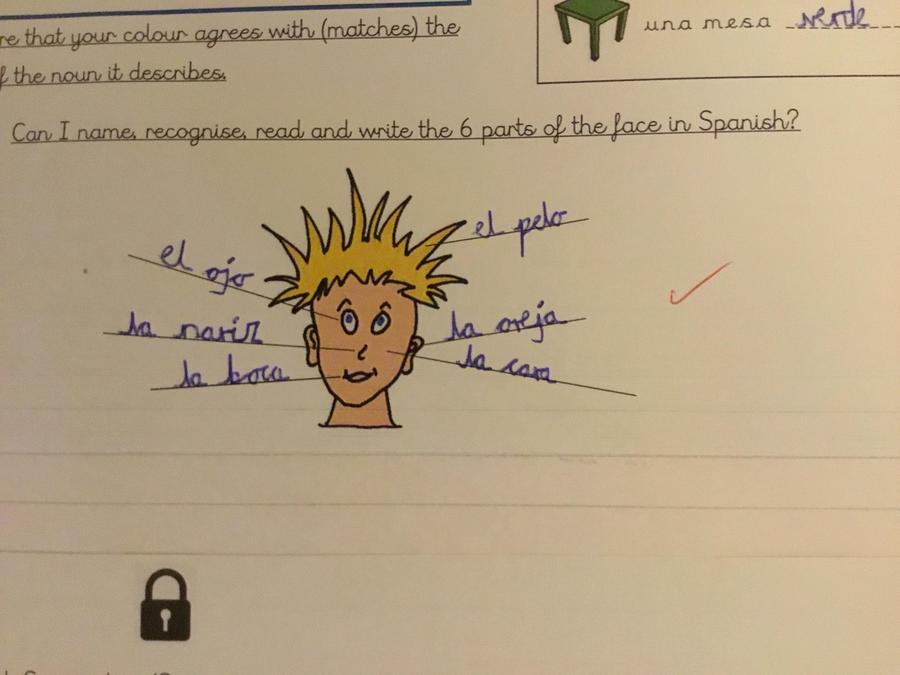 re that your colour agrees with (matches) the
f the noun it describes.
una mesa verde
Can I name, recognise, read and write the 6 parts of the face in Spanish?
el pelo
el ojo
la nariz
la oreja
la boca
la cara